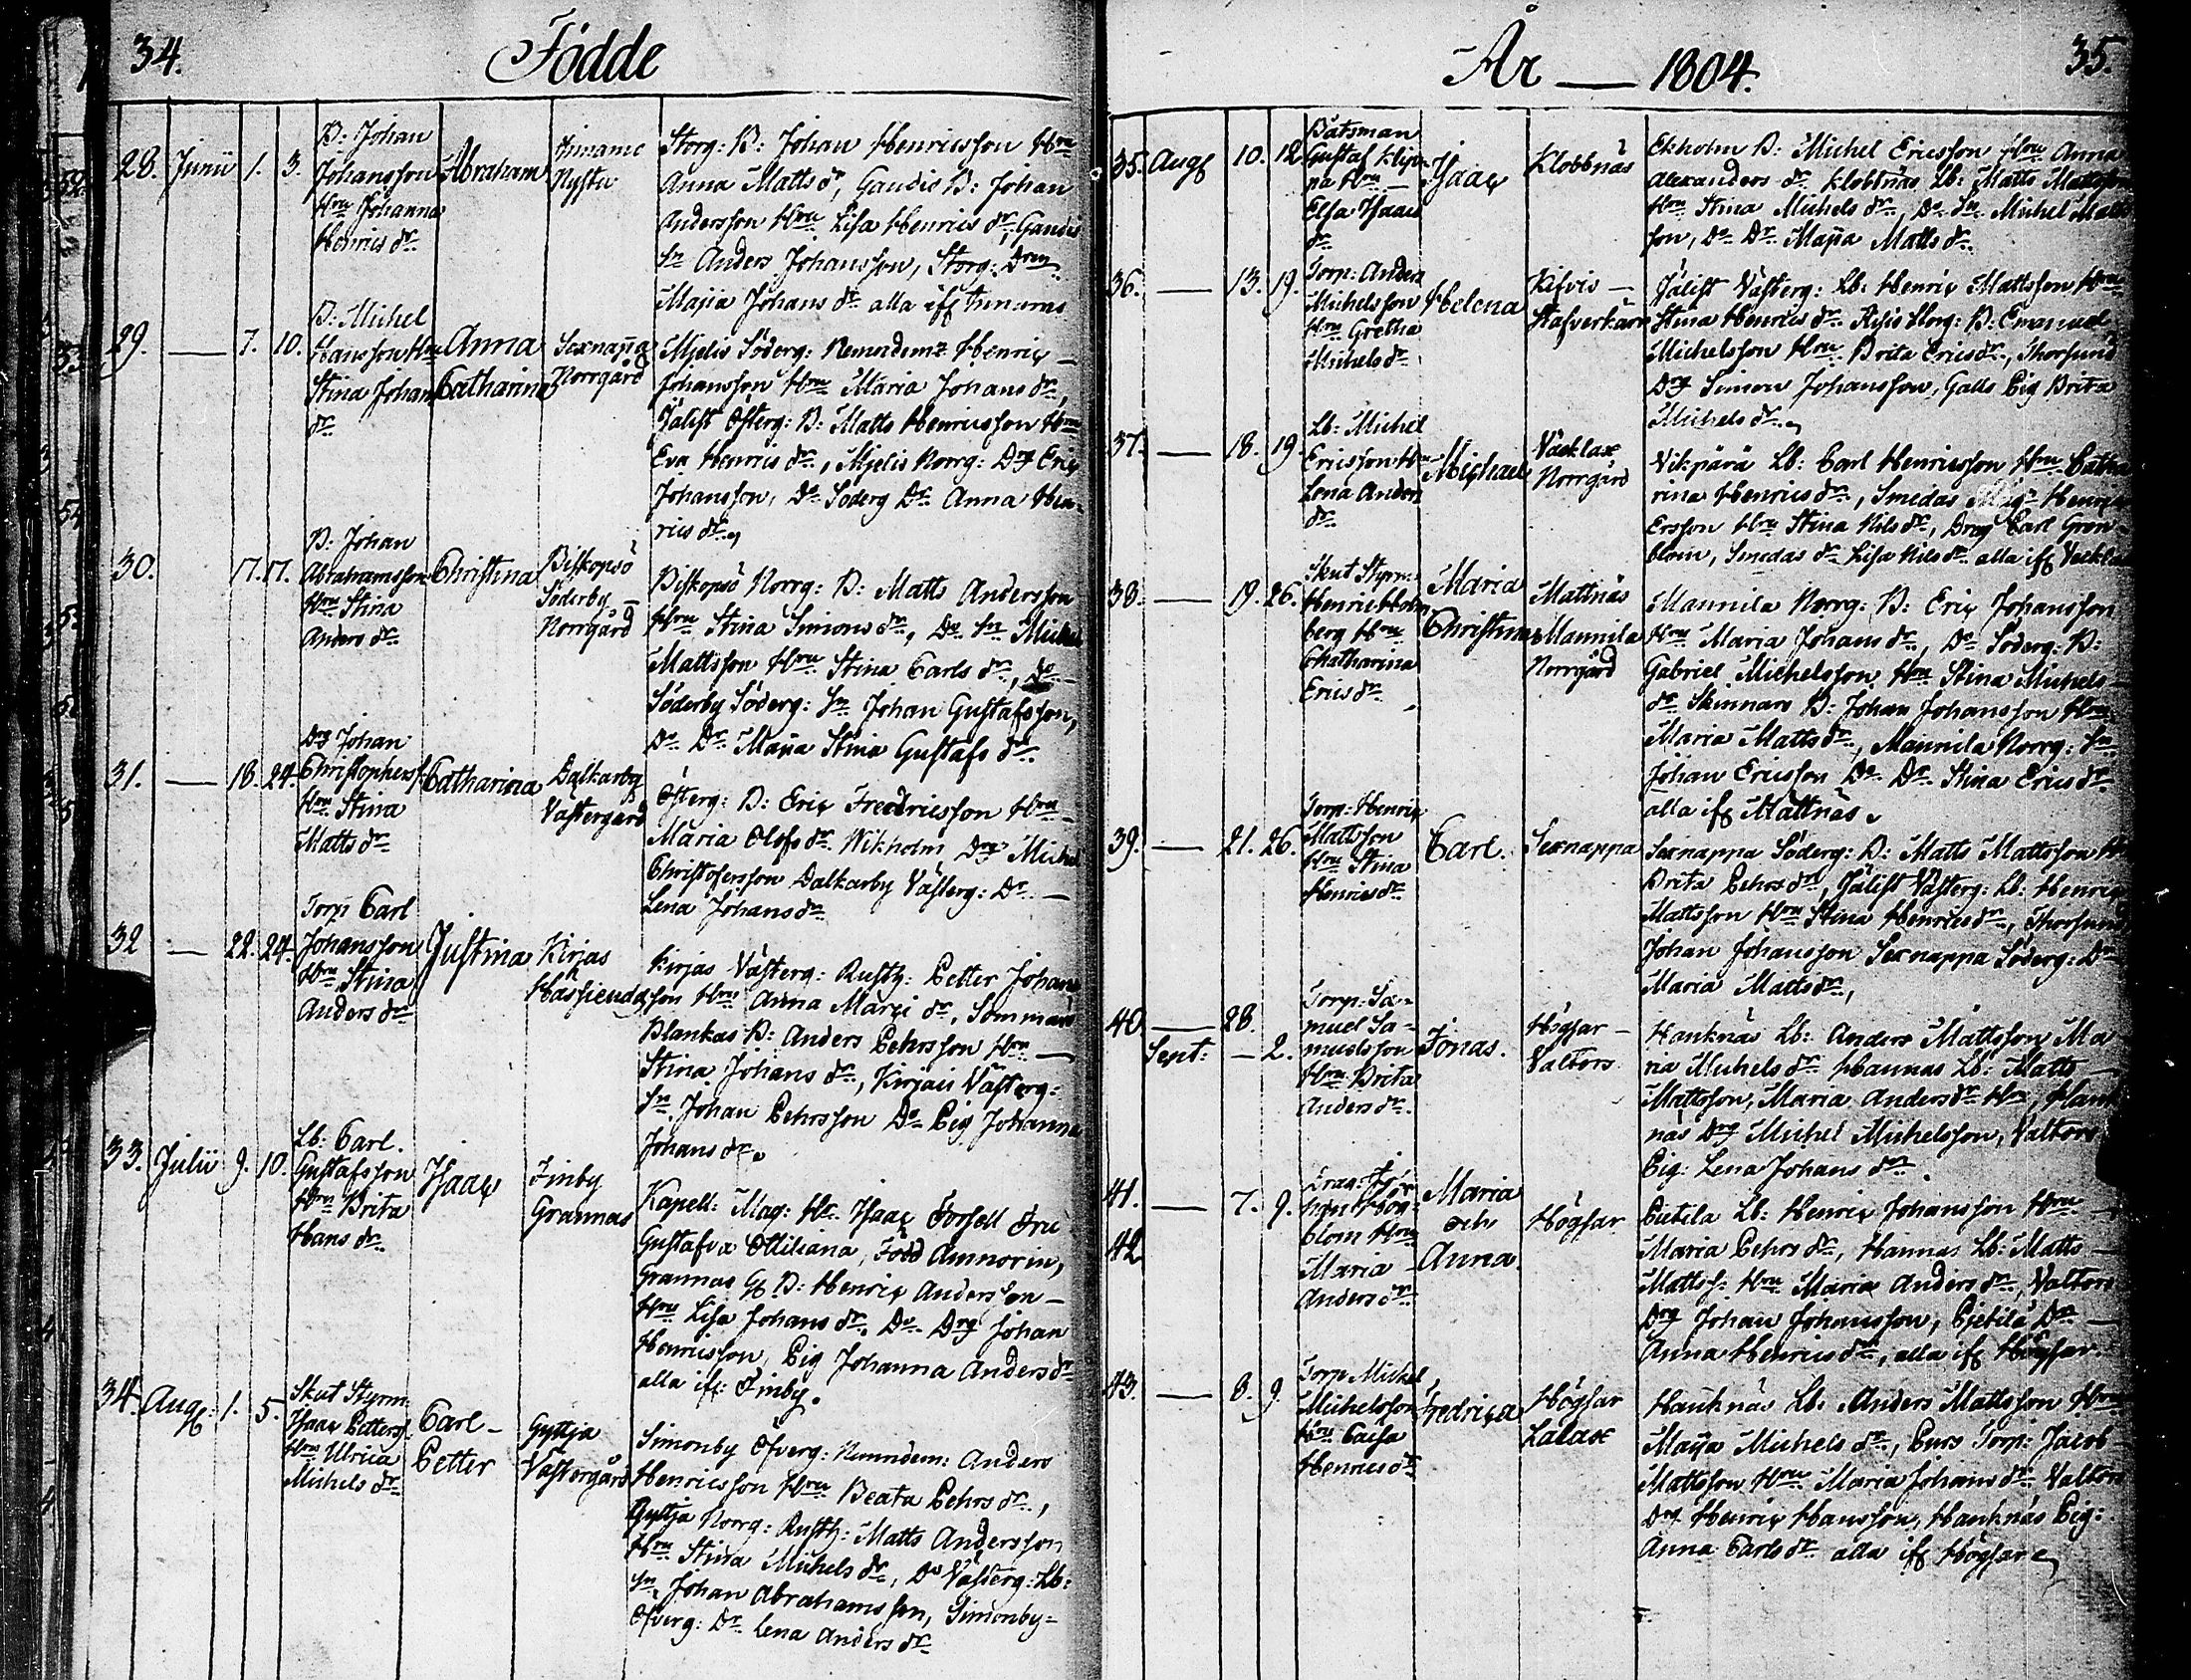 34.
Födde
28. Junii 1. 3.
B: Johan
Johansson
Hru Johanna
Henrics dr.
Abraham
Finnamo
Nystu
Storg: B: Johan Henricsson Hru
Anna Matts dr, Gaudis B: Johan
Andersson Hru Lisa Henrics dr, Gaudis
Sn Anders Johansson, Storg: Drn
Majia Johans dr alla
29. — 7. 10.
B: Michel
Hansson Hru
Stina Johans
dr
Anna
Catharina
Sexnappa
Norrgård
Mjelis Söderg: Henric
Johansson Hru Maria Johans dr,
Jälist Österg: B: Matts Henricsson Hru
Eva Henrics dr, Mjelis Norrg: Drg Eric
Johansson, Do Söderg Dr Anna Hen-
rics dr
30. 17. 17.
B: Johan
Abrahamsson
Hru Stina
Anders dr
Christina
Biskopsö
Söderby —
Norrgård
Biskopsö Norrg: B: Matts Andersson
Hru Stina Simons dr, Do Sn Michel
Mattsson Hru Stina Carls dr, Do
Söderby Söderg: Sn Johan Gustafsson,
Do Dr Maija Stina Gustafs dr
31. — 18. 24.
Drg Johan
Christophers
Hru Stina
Matts dr
Catharina
Dalkarby
Västergård
Österg: B: Eric Fredricsson Hru
Maria Olofs dr Wikholm Drg Michel
Christofersson Dalkarby Västerg: Dr —
Lena Johans dr
32 — 22. 24.
Torp Carl
Johansson
Hru Stina
Anders dr
Justina
Kirjas
Kirjas Västerg: Rusth: Petter Johans
son Hru Anna Marci dr,
Blankas B: Anders Pehrsson Hru —
Stina Johans dr, Kirjais Västerg:
Sn Johan Pehrsson Do Pig Johanna
Johans dr
33. Julii 9. 10.
Lb: Carl
Gustafsson
Hru Brita
Hans dr
Isaac
Finby
Grannas
Kapell: Mag: Hr Isaac Forsell Fru
Gustafva Ottiliana, Född Amnorin,
Grannas B: Henric Andersson —
Hru Lisa Johans dr, Do Drg Johan
Henricsson, Pig Johanna Anders dr
alla Finby.
34. Aug: 1. 5.
Skut Styrm
Isaac Petters
Hru Ulrica
Michels dr
Carl —
Petter
Gyttja
Västergård
Simonby Öfverg: Nämndem: Anders
Henricsson Hru Beata Pehrs dr,
Gyttja Norrg: Rusth: Matts Andersson
Hru Stina Michels dr, Do Västerg: Lb:
Sn Johan Abrahamsson, Simonby-
Öfverg: Dr Lena Anders dr
År — 1804.
35.
35. Aug 10. 12
Båtsman
Gustaf
Hru —
Elsa Isaacs
dr
Isaac
Klobbnäs
Ekholm B: Michel Ericsson Hru Anna
Alexanders dr Klobbnäs Lb: Matts Mattsson
Hru Stina Michels dr, Do Sn Michel Matts
son, Do Dr Majia Matts dr
36. — 13. 19.
Torp: Anders
Michelsson
Hru Gretha
Michels dr
Helena
Kifvis —
Jälist Västerg: Lb: Henric Mattsson Hru
Stina Henrics dr Storg: B: Emanuel
Michelsson Hru Brita Erics dr, Thorsund
Drg Simon Johansson, Galls Pig Brita
Michels dr
37. — 18. 19.
Lb: Michel
Ericsson Hru
Lena Anders
dr
Michael
Väcklax
Norrgård
Vikpärä Lb: Carl Henricsson Hru Catha
rina Henrics dr, Smedas Henric
Ersson Hru Stina Nils dr, Drg Carl Grön-
blom, Smedas dr Lisa Nils dr alla
38. — 19. 26.
Skut Styrm:
Henric Holm
berg Hru
Chatharina
Erics dr
Maria
Christina
Mattnäs
Mannila
Norrgård
Mannila Norrg: B: Eric Johansson
Hru Maria Johans dr, Do Söderg: B:
Gabriel Michelsson Hru Stina Michels
dr Skinnars B: Johan Johansson Hru
Maria Matts dr, Mannila Norrg: Sn
Johan Ericsson Do Dr Stina Erics dr
alla Mattnäs.
39. — 21. 26.
Torp: Henric
Mattsson
Hru Stina
Henrics dr
Carl.
Sexnappa
Sexnappa Söderg: B: Matts Mattsson
Brita Pehrs dr, Jälist Västerg: Lb: Henric
Mattsson Hru Stina Henrics dr, Thorsund
Johan Johansson Sexnappa Söderg: Dr
Maria Matts dr,
40 — 28.
Sept: — 2.
Torp: Sa-
muel Sa-
muelsson
Hru Brita
Anders dr.
Jonas.
Högsar —
Valtors
Hanknäs Lb: Anders Mattsson Ma
ria Michels dr Hannas Lb: Matts —
Mattsson, Maria Anders dr Hru, Hank
näs Drg Michel Michelsson, Valtors
Pig: Lena Johans dr.
41. — 7. 9.
42
blom Hru
Maria
Anders dr
Maria
och
Anna.
Högsar
Pietila Lb: Henric Johansson Hru
Maria Pehrs dr, Hannas Lb: Matts —
Matts s. Hru Maria Anders dr, Valtors
Drg Johan Johansson, Pjetilä Dr —
Anna Henrics dr, alla Högsar
43. — 8. 9.
Torp Michel
Michelsson
Hru Caisa
Henrics dr
Fredrica
Högsar
Lalax
Hanknäs Lb: Anders Mattsson Hru
Maija Michels dr, Torp: Jacob
Mattsson Hru Maria Johans dr Valtors
Drg Henric Hansson, Hanknäs Pig:
Anna Carls dr alla Högsar